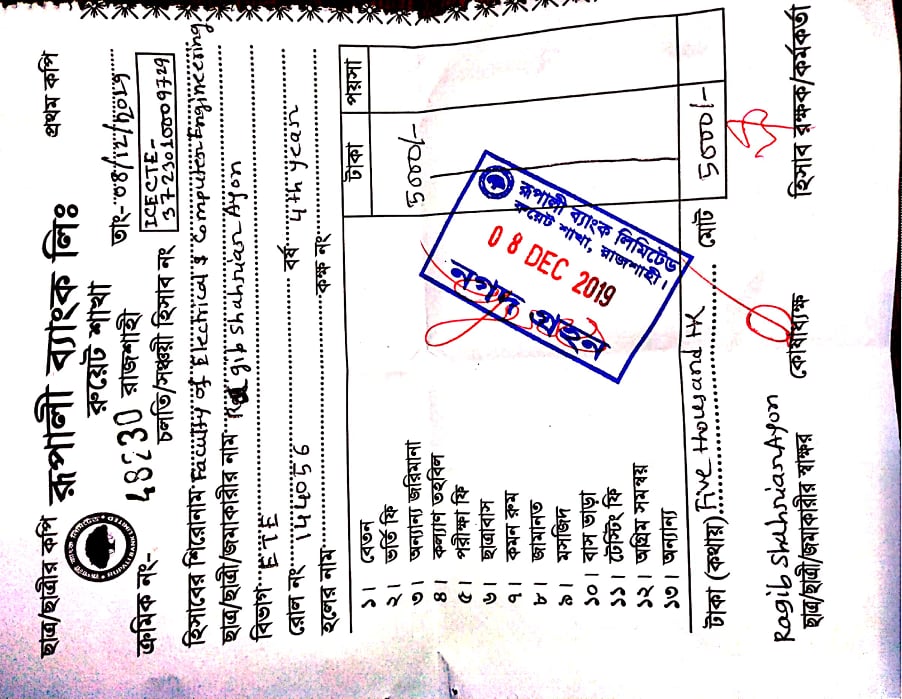 ছাত্র/ছাত্রীর কপি রূপালী ব্যাংক লিঃ প্রথম কপি
রুয়েট শাখা
RUPALI BANK LIMITED
ক্রমিক নং- 48230 রাজশাহী তাং- 08/12/2019
চলতি/সঞ্চয়ী হিসাব নং ICECTE-
3723010009729
হিসাবের শিরোনাম Faculty of Electrical & Computer Engineering
ছাত্র/ছাত্রী/জমাকারীর নাম Ragib Shahriar Ayon
বিভাগ ETE
রোল নং 144056 বর্ষ 4th year
হলের নাম কক্ষ নং
টাকা পয়সা
১। বেতন
২। ভর্তি ফি
৩। অন্যান্য জরিমানা 5000/-
৪। কল্যাণ তহবিল
৫। পরীক্ষা ফি
৬। ছাত্রাবাস
৭। কমন রুম
৮। জামানত
৯। মসজিদ
১০। বাস ভাড়া
১১। টেস্টিং ফি
১২। অগ্রিম সমন্বয়
১৩। অন্যান্য
নগদ গ্রহণ
08 DEC 2019
রূপালী ব্যাংক লিমিটেড
রুয়েট শাখা, রাজশাহী।
টাকা (কথায়) Five thousand tk মোট 5000/-
Ragib Shahriar Ayon
ছাত্র/ছাত্রী/জমাকারীর স্বাক্ষর কোষাধ্যক্ষ হিসাব রক্ষক/কর্মকর্তা